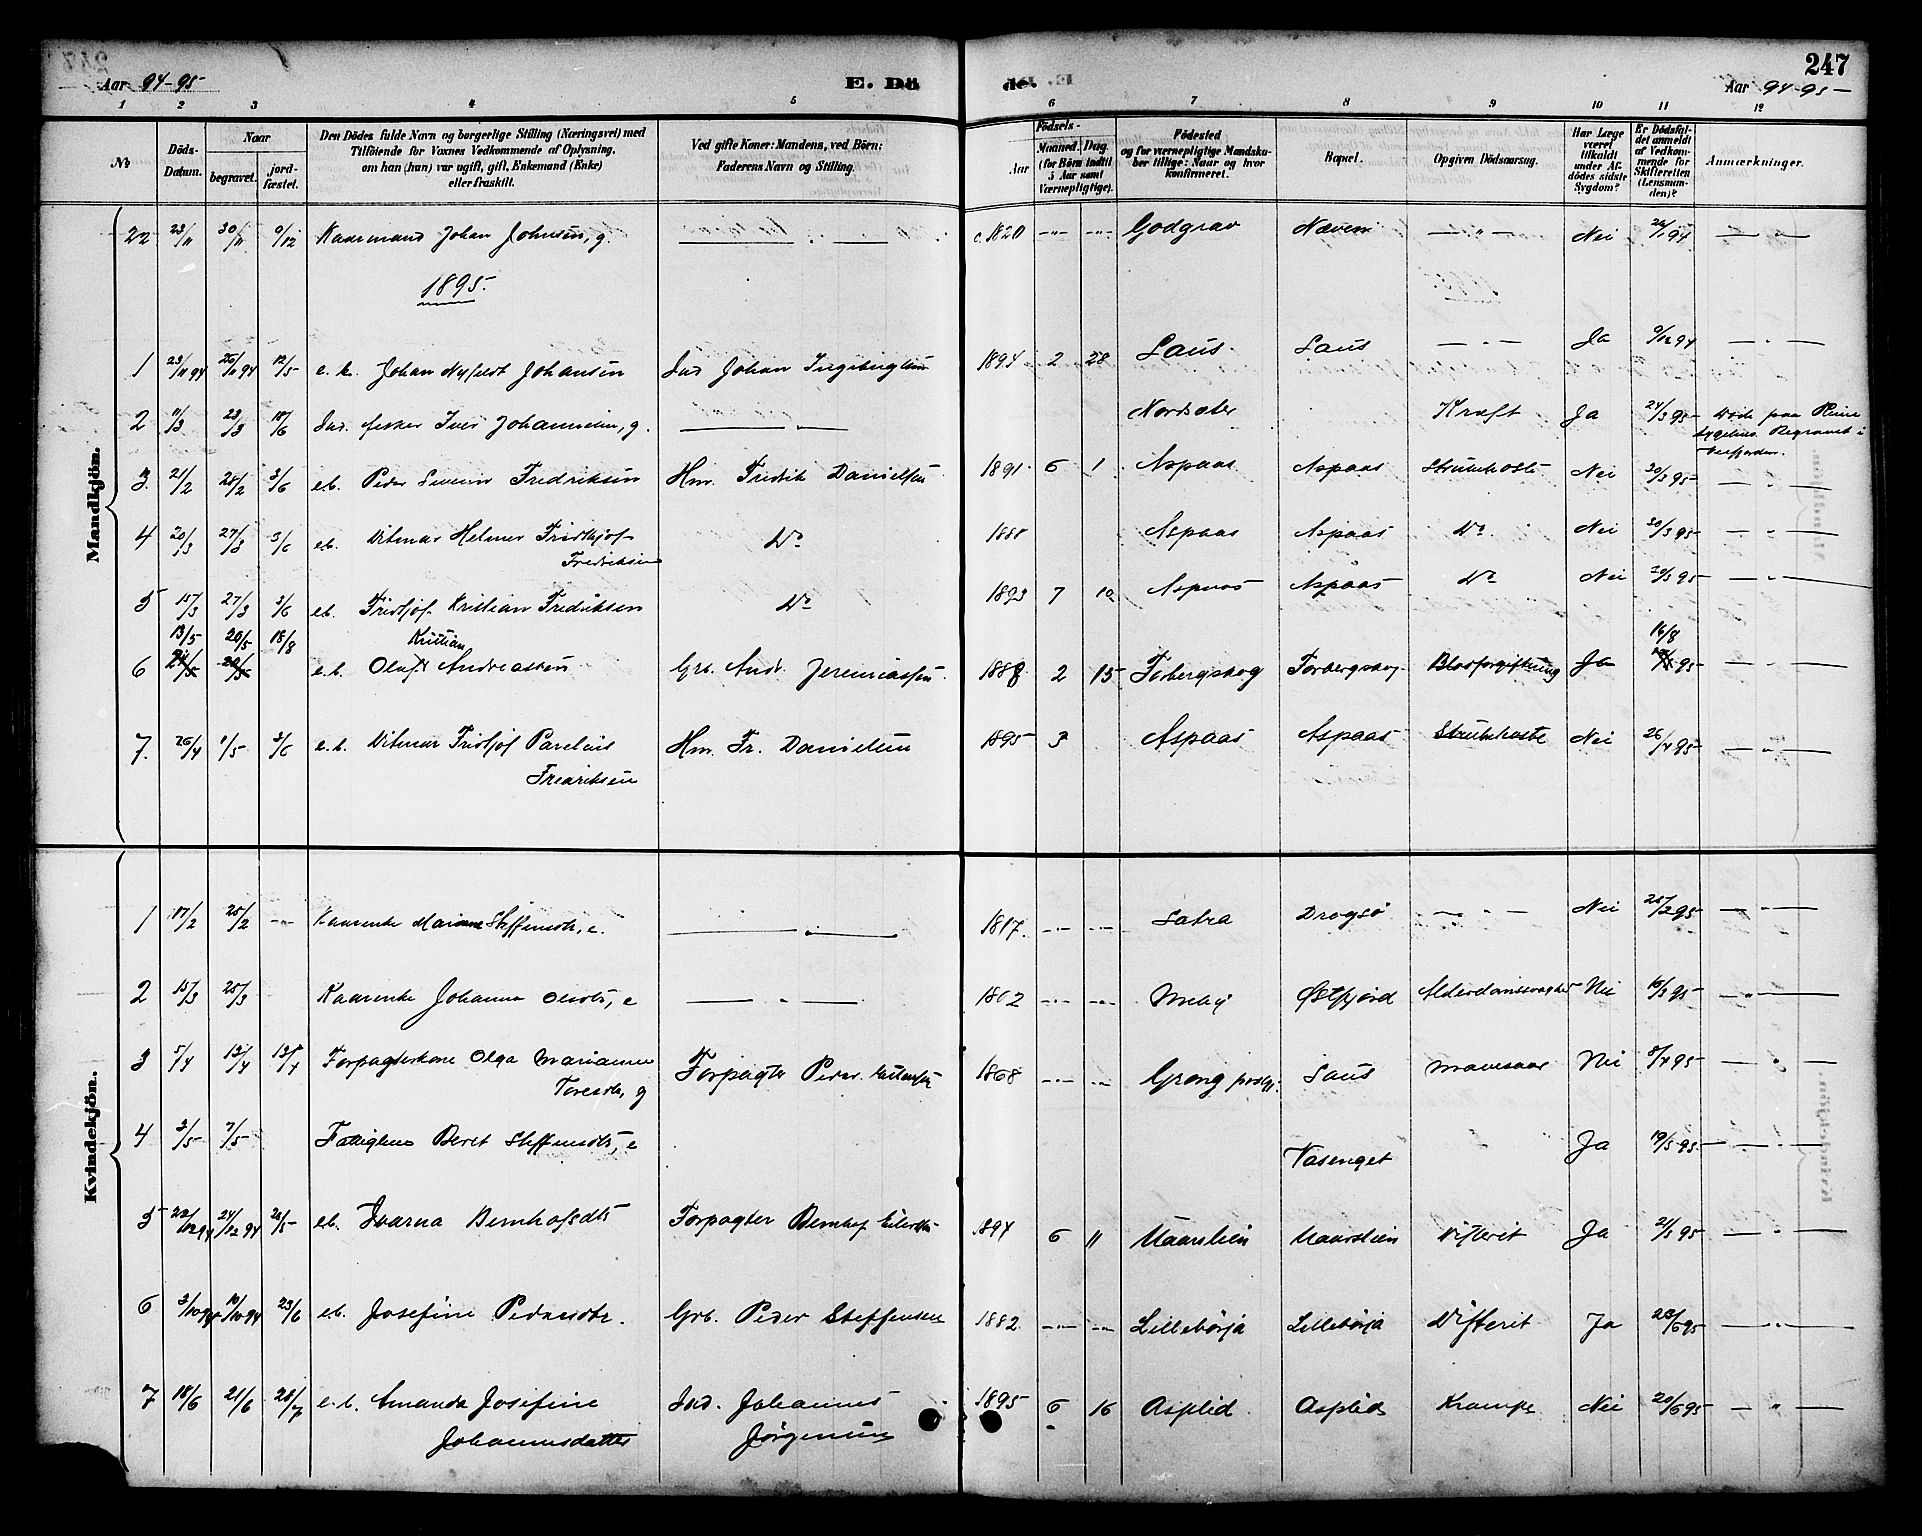 247
Aar 94-95
E. Dö
de.
Aar 94-95
1 2 3 4 5 6 7 8 9 10 11 12
No
Döds-Datum.
Naar
begravet.
jord-fæstet.
Den Dödes fulde Navn og borgerlige Stilling (Næringsvei) med
Tilföiende for Voxnes Vedkommende af Oplysning,
om han (hun) var ugift, gift, Enkemand (Enke)
eller fraskilt.
Ved gifte Koner: Mandens, ved Börn:
Faderens Navn og Stilling.
Födsels-
Aar
Maaned. Dag.
(for Börn indtil
5 Aar samt
Værnepligtige).
Födested
og for værnepligtige Mandsku-
ber tillige: Naar og hvor
konfirmeret.
Bopæl.
Opgiven Dödsaarsag.
Har Læge
været
tilkaldt
under Af-
dödes sidste
Sygdom?
Er Dödsfal-
det anmeldt
af Vedkom-
mende for
Skifteretten
(Lensman-
den)?
Anmærkninger.
Mandkjön.
22 23/11 30/11 9/12 Kaarmand Johan Johnsen, g. c. 1820 Godgrav Næven Nei 26/1 94
1895.
1 23/11 94 26/11 94 12/5 e.b. Johan Nyfeldt Johansen Ind Johan 1894 2 28 Saus Saus Ja 9/12 94
2 11/3 23/3 Ind. fisker Iver Johannesen, g. Kræft Ja 24/3 95
3. 21/2 28/2 3/6 e.b. Peder Severin Fredriksen Hm. Fredrik Danielsen 1891 6 1 Aspaas Aspaas Strubehoste Nei 30/3 95
4 20/3 27/3 3/6 e.b. Ditmar Helmer Fridtjof
Fredriksen Do 1888 Aspaas Aspaas Do Nei 30/3 95
5 15/3 27/3 3/6 e.b. Fridtjof Kristian Fredriksen Do 1893 7 10 Aspaas Aspaas Do Nei 30/3 95
13/5 20/5 18/8 Kristian 16/8
6 e.b. Oluf Andreassen Grb. Andr. Jeremiassen 1888 2 15 Forbergskog Forbergskog Blodforgiftning Ja 95
7. 26/4 1/5 3/6 e.b. Ditmar Fridtjof Parelius
Fredriksen Hm. Fr. Danielsen 1895 3 Aspaas Aspaas Strubehoste Nei 26/4 95
Kvindekjön.
1 17/2 25/2 Kaarenke Mariane Steffensdtr, e. 1817 Satra Dragsö Nei 25/2 95
2 15/3 25/3 Kaarenke Johanna Olsdtr, e 1802 Østfjord Alderdomssvaghed Nei 16/3 95
3 5/4 13/4 13/4 Forpagterkone Olga Marianne
Toresdtr, g Forpagter Peder 1868 Grong prstgj. Saus Mavesaar Nei 8/4 95
4 3/5 7/5 Fattiglem Beret Steffensdtr, e Vasenget Ja 19/5 95
5 22/12 94 24/12 94 e.b. Ivarna Bernhofsdtr Forpagter Bernhof 1894 6 11 Maarslien Maarslien Difterit Ja 21/5 95
6 3/10 94 10/10 94 23/6 e.b. Josefine Pedersdtr. Grb. Peder Steffensen 1882 Lillebörja Lillebörja Difterit Ja 23/6 95
7 18/6 21/6 28/7 e.b. Amanda Josefine
Johannesdatter Ind. Johannes
Jörgensen 1895 6 16 Asplid Asplid Krampe Nei 20/6 95